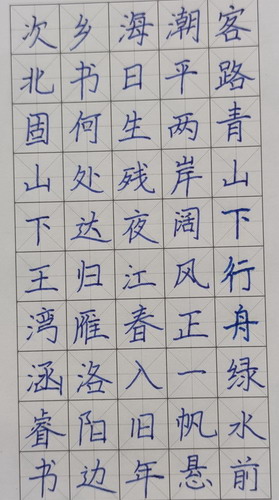 客路青山下行舟绿水前
潮平两岸阔风正一帆悬
海日生残夜江春入旧年
乡书何处达归雁洛阳边
次北固山下王湾涵睿书